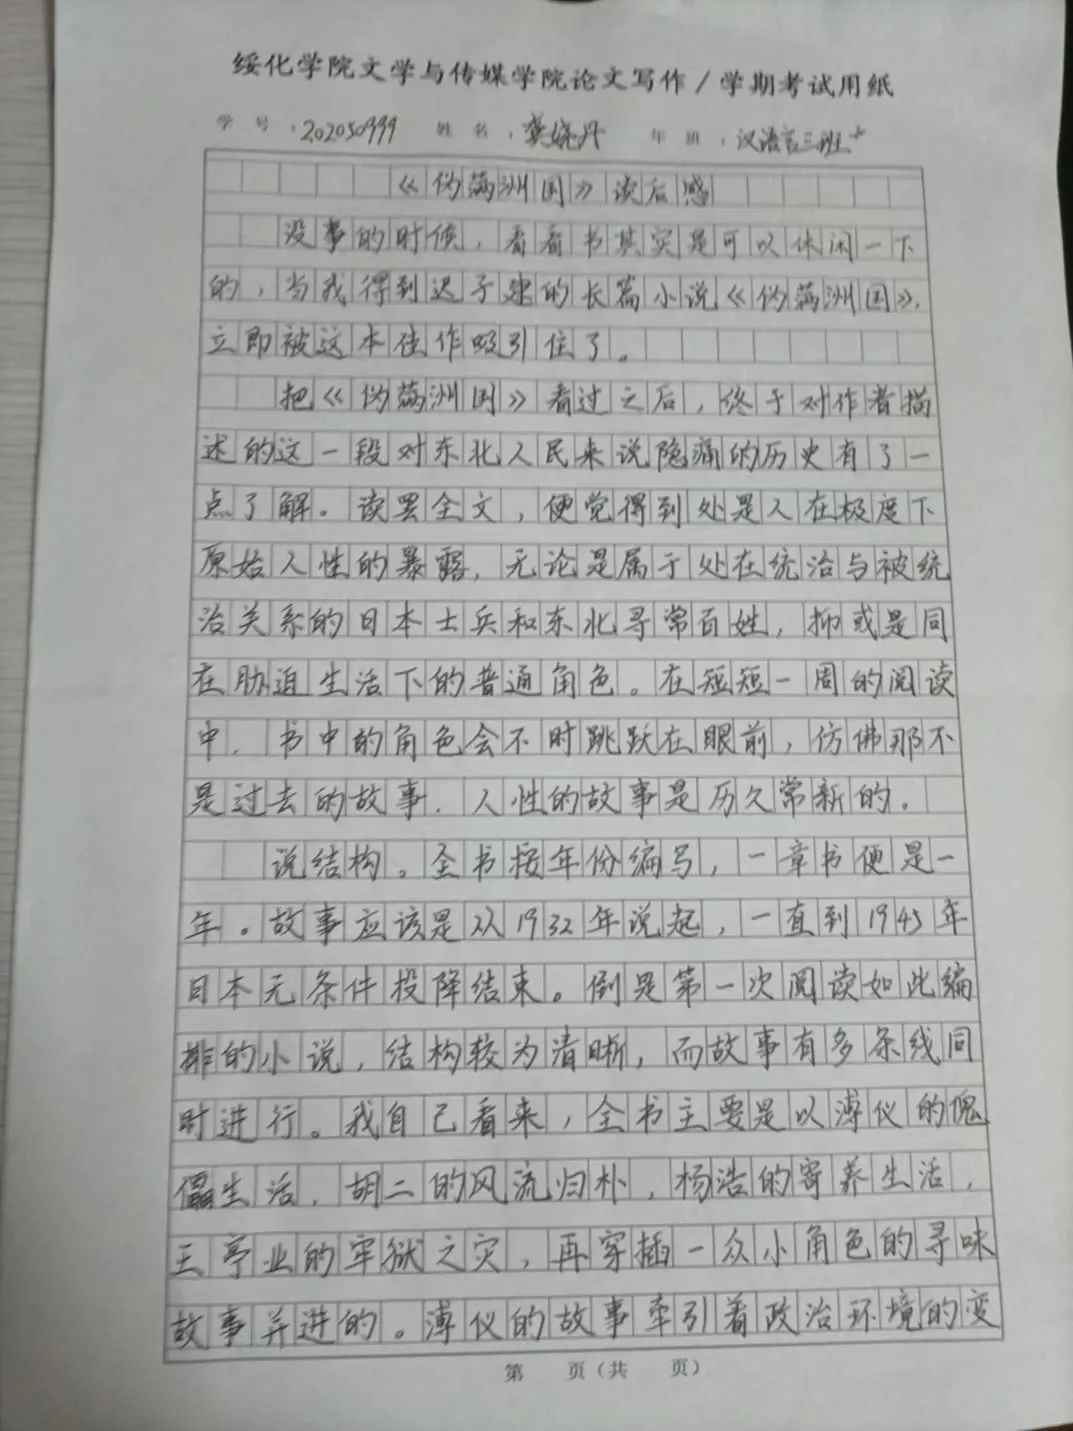 绥化学院文学与传媒学院论文写作/学期考试用纸
学 号:202050999 姓 名:龚娆丹 年 班:汉语言三班
《伪满洲国》读后感
没事的时候,看看书其实是可以休闲一下
的,当我得到迟子建的长篇小说《伪满洲国》,
立即被这本佳作吸引住了。
把《伪满洲国》看过之后,终于对作者描
述的这一段对东北人民来说隐痛的历史有了一
点了解。读罢全文,便觉得到处是人在极度下
原始人性的暴露,无论是属于处在统治与被统
治关系的日本士兵和东北寻常百姓,抑或是同
在胁迫生活下的普通角色。在短短一周的阅读
中,书中的角色会不时跳跃在眼前,仿佛那不
是过去的故事,人性的故事是历久常新的。
说结构。全书按年份编写,一章书便是一
年。故事应该是从1932年说起,一直到1945年
日本无条件投降结束。倒是第一次阅读如此编
排的小说,结构较为清晰,而故事有多条线同
时进行。我自己看来,全书主要是以溥仪的傀
儡生活,胡二的风流归朴,杨浩的寄养生活,
王亭业的牢狱之灾,再穿插一众小角色的寻味
故事并进的。溥仪的故事牵引着政治环境的变
第 页(共 页)